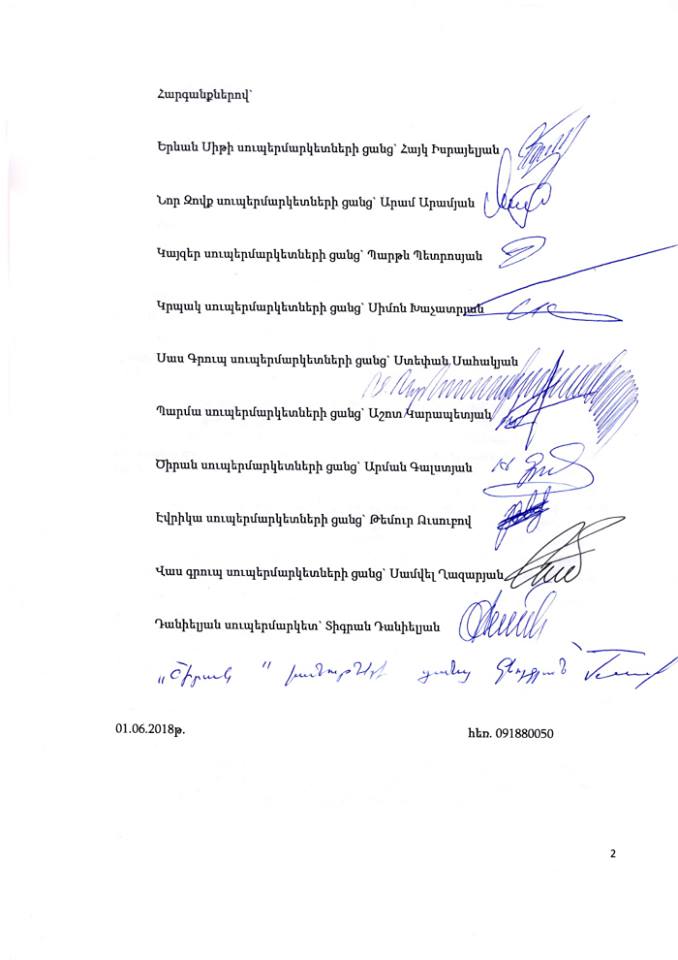 Հարգանքներով՝
Երևան Սիթի սուպերմարկետների ցանց՝ Հայկ Իսրայելյան
Նոր Զովք սուպերմարկետների ցանց՝ Արամ Արամյան
Կայզեր սուպերմարկետների ցանց՝ Պարթև Պետրոսյան
Կրպակ սուպերմարկետների ցանց՝ Սիմոն Խաչատրյան
Սաս Գրուպ սուպերմարկետների ցանց՝ Ստեփան Սահակյան
Պարմա սուպերմարկետների ցանց՝ Աշոտ Կարապետյան
Ծիրան սուպերմարկետների ցանց՝ Արման Գալստյան
Էվրիկա սուպերմարկետների ցանց՝ Թեմուր Ուսուբով
Վաս գրուպ սուպերմարկետների ցանց՝ Սամվել Ղազարյան
Դանիելյան սուպերմարկետ՝ Տիգրան Դանիելյան
„Շիրակ " խանութների ցանց
01.06.2018թ.
հեռ. 091880050
2